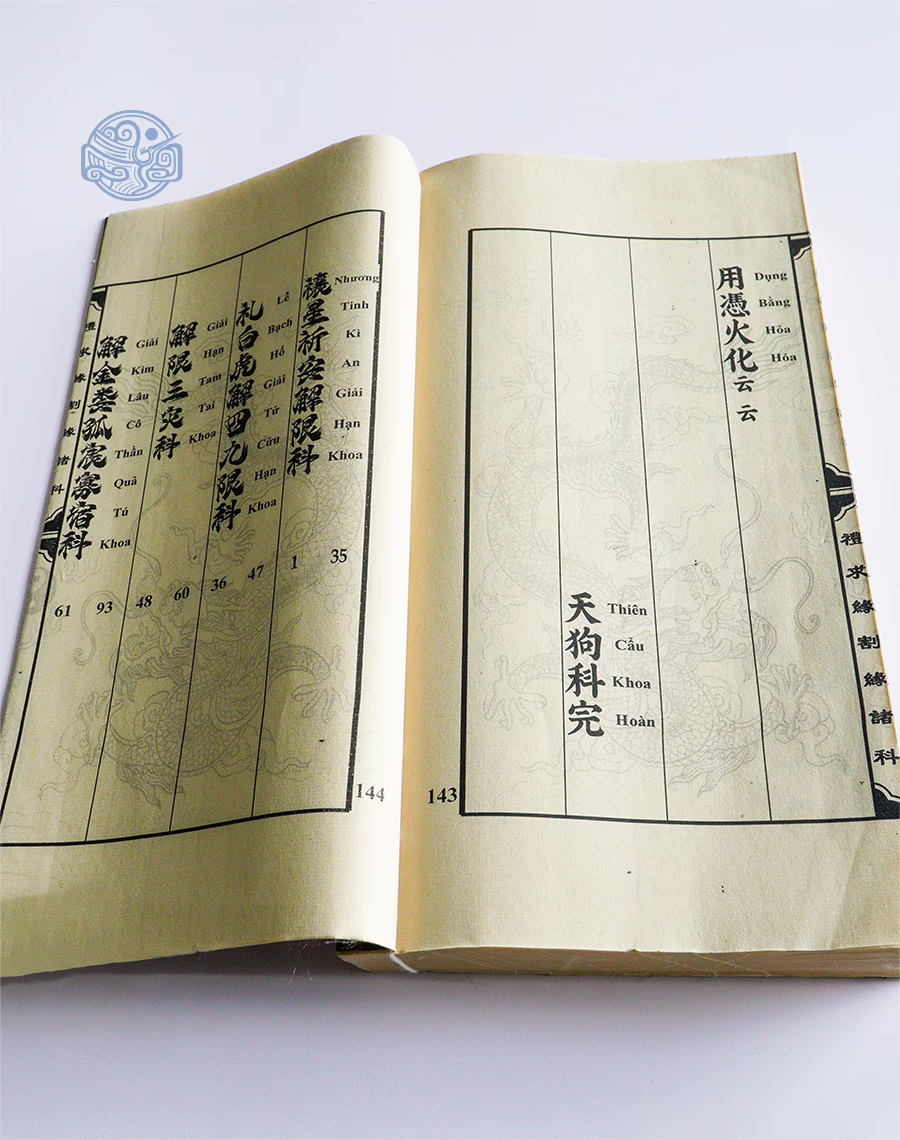 禮求緣割緣諸科
用憑火化云云
Dụng Bằng Hỏa Hóa
天狗科完
Thiên Cẩu Khoa Hoàn
143
禳星祈安解限科
Nhương Tinh Kì An Giải Hạn Khoa
1 35
礼白虎解四九限科
Lễ Bạch Hổ Giải Tứ Cửu Hạn Khoa
36 47
解限三灾科
Giải Hạn Tam Tai Khoa
48 60
解金婁孤宸寡宿科
Giải Kim Lâu Cô Thần Quả Tú Khoa
61 93
禮求緣割緣諸科
144